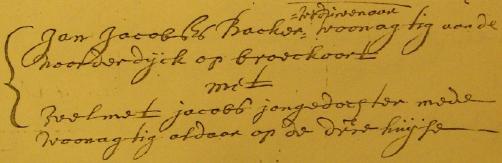 Jan Jacobsz Backer, weduwenaar woonagtig aan de
noorderdyck op broeckoort
met
Neelmet jacobs jongedochter mede
woonagtig aldaar op de drie huyse